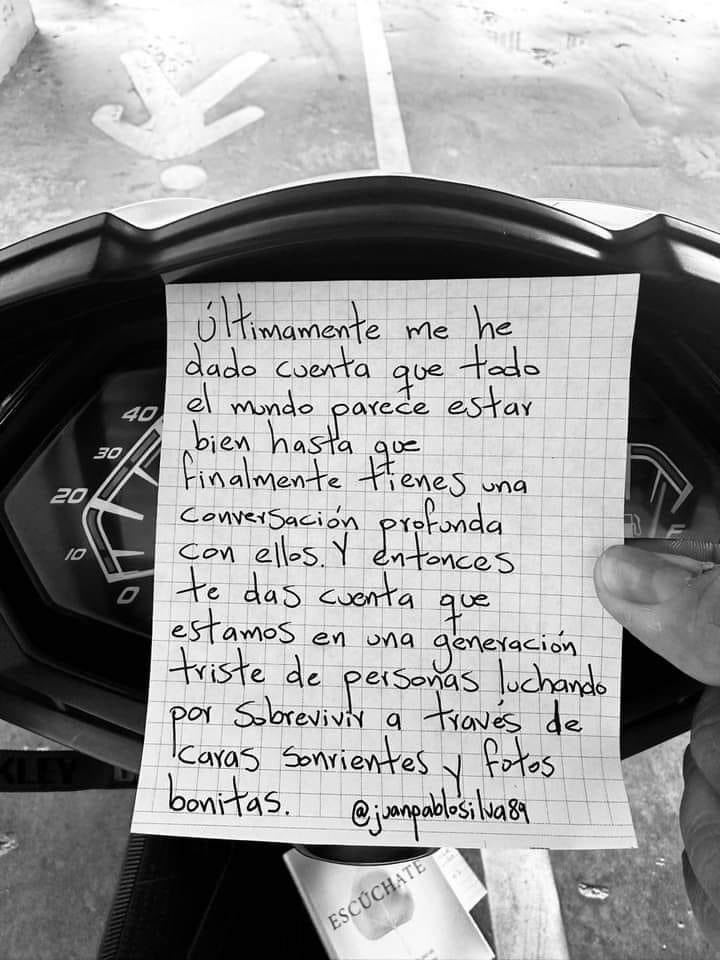 Últimamente me he
dado cuenta que todo
el mundo parece estar
bien hasta que
finalmente tienes una
conversación profunda
con ellos. Y entonces
te das cuenta que
estamos en una generación
triste de personas luchando
por sobrevivir a través de
caras sonrientes y fotos
bonitas. @juanpablosilva89
40
30
20
10
0
F
KLEY
ESCÚCHATE